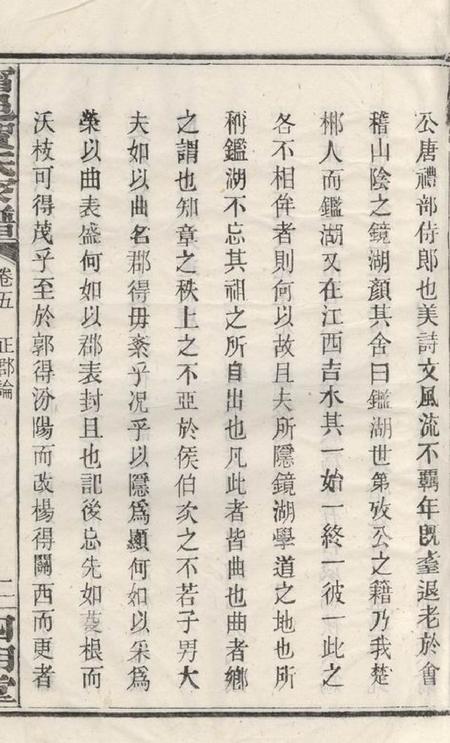 公唐禮部侍郎也美詩文風流不羈年旣耋退老於會
稽山陰之鏡湖顏其舍曰鑑湖世第攷公之籍乃我楚
梆人而鑑湖又在江西吉水其一始一終一彼一此之
各不相侔者則何以故且夫所隱鏡湖學道之地也所
稱鑑湖不忘其祖之所自出也凡此者皆曲也曲者鄉
之謂也知章之秩上之不亞於侯伯次之不若子男大
夫如以曲名郡得毋紊乎况乎以隱爲顯何如以采爲
榮以曲表盛何如以郡表封且也記後忘先如蔆根而
沃枝可得茂乎至於郭得汾陽而改楊得關西而更者
卷五 正郡論
二